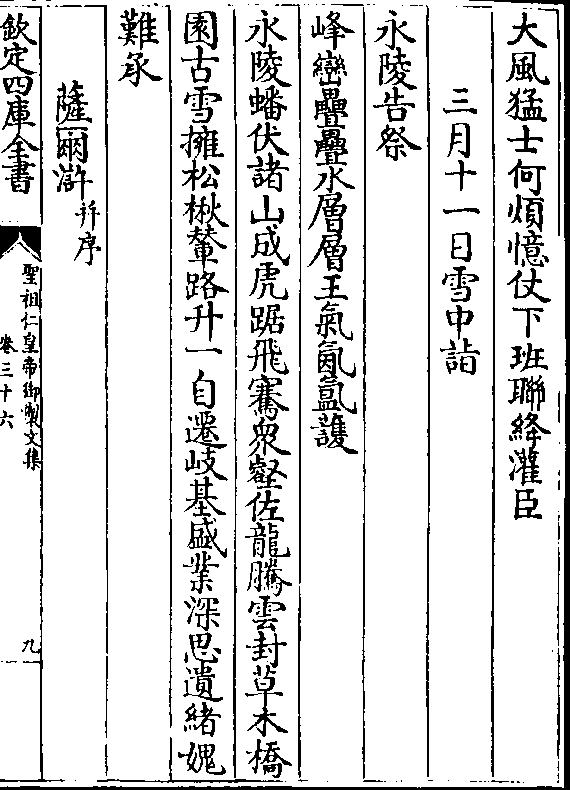 大風猛士何煩憶仗下班聯絳灌臣
三月十一日雪中詣
永陵告祭
峰巒疊疊水層層王氣氤氳護
永陵蟠伏諸山成虎踞飛騫衆壑佐龍騰雲封草木橋
園古雪擁松楸輦路升一自遷岐基盛業深思遺緒媿
難承
薩爾滸并序
欽定四庫全書
聖祖仁皇帝御製文集
卷三十六
九